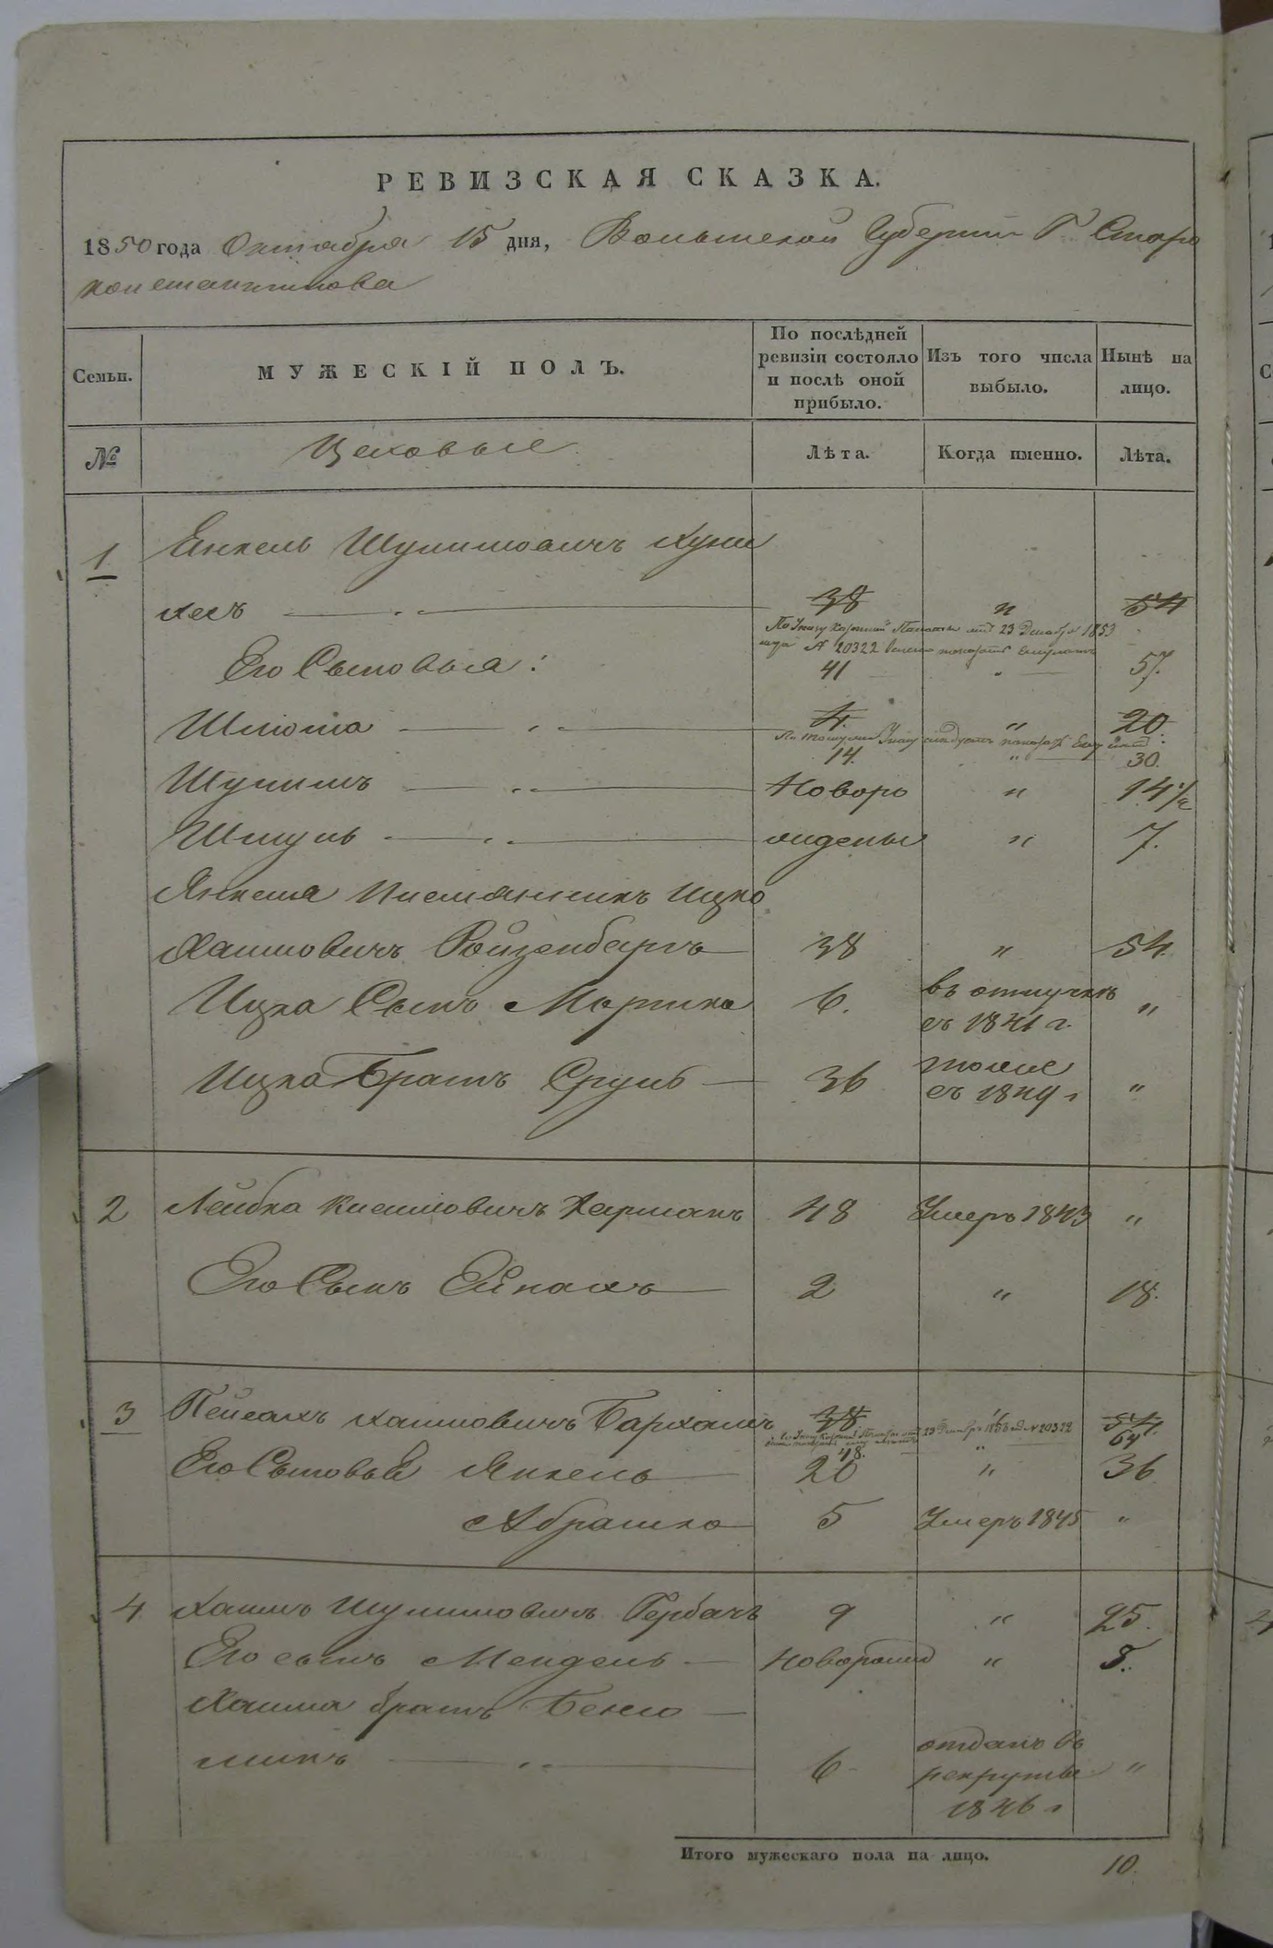 РЕВИЗСКАЯ СКАЗКА.
1850 года Октября 15 дня, Волынской Губернии Г Старо
константинова
Семьи.
МУЖЕСКІЙ ПОЛЪ.
По послѣдней ревизіи состояло и послѣ оной прибыло.
Изъ того числа выбыло.
Нынѣ на лицо.
№
Цеховые
Лѣта.
Когда именно.
Лѣта.
1 Янкель Шулимовичъ Куни
келъ 38 " 54
По Указу Казенной Палаты отъ 23 Декабря 1853
года № 20322 велено показать
Его Сыновья: 41 " 57.
Шлиома 4. " 20
14. " 30.
Шулимъ Новоро " 14 1/2
Шмуль жденые " 7.
Янкеля Племянникъ Ицко
Хаимовичъ Ройзенбаргъ 38 " 54.
Ицка Сынъ Мортко 6. въ отлучкѣ "
съ 1841 г.
Ицка Братъ Сруль 36 тоже "
съ 1849 г
2 Лейбка Хаимовичъ Харманъ 48 Умеръ 1843 "
Его Сынъ 2 " 18.
3 Пейсахъ Хаимовичъ 38 " 54.
23 Декабря 1853 № 20322 64
48. "
Его Сыновья Янкель 20 " 36
Абрашко 5 Умеръ 1845 "
4 Хаимъ Шулимовичъ Гербачъ 9 " 25.
Его сынъ Мендель Новорожд " 3.
Хаима братъ Бенио
минъ 6 отданъ въ "
рекруты
1846 г
Итого мужескаго пола на лицо. 10.